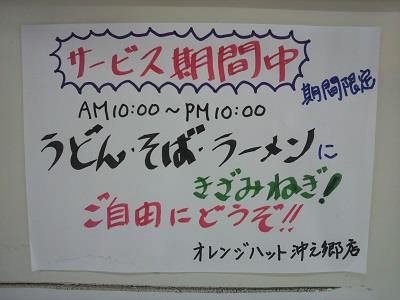 サービス期間中
期間限定
AM10:00~PM10:00
うどん・そば・ラーメンに
きざみねぎ!
ご自由にどうぞ!!
オレンジハット沖之郷店